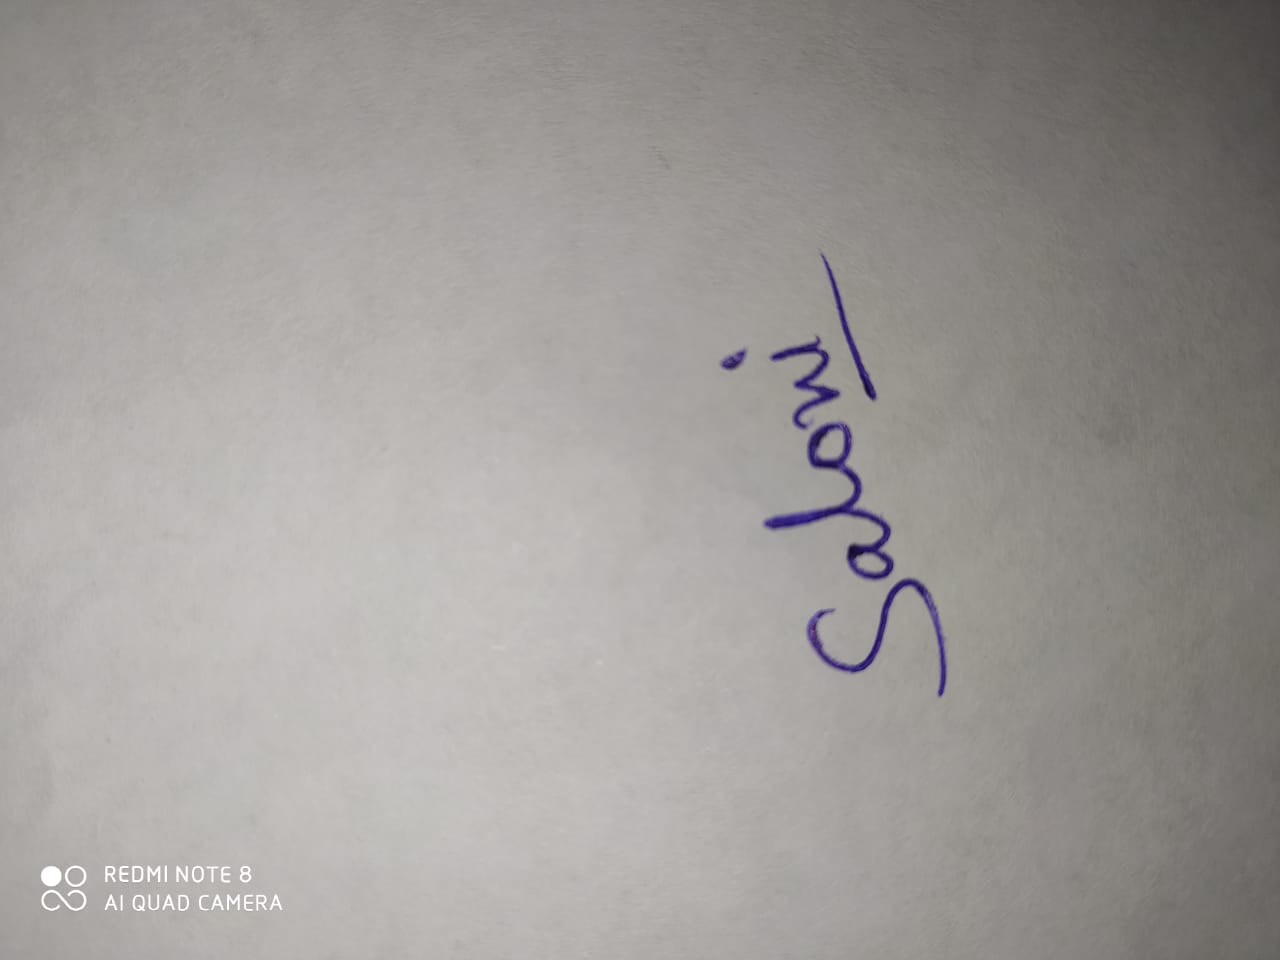 Saloni
REDMI NOTE 8
AI QUAD CAMERA